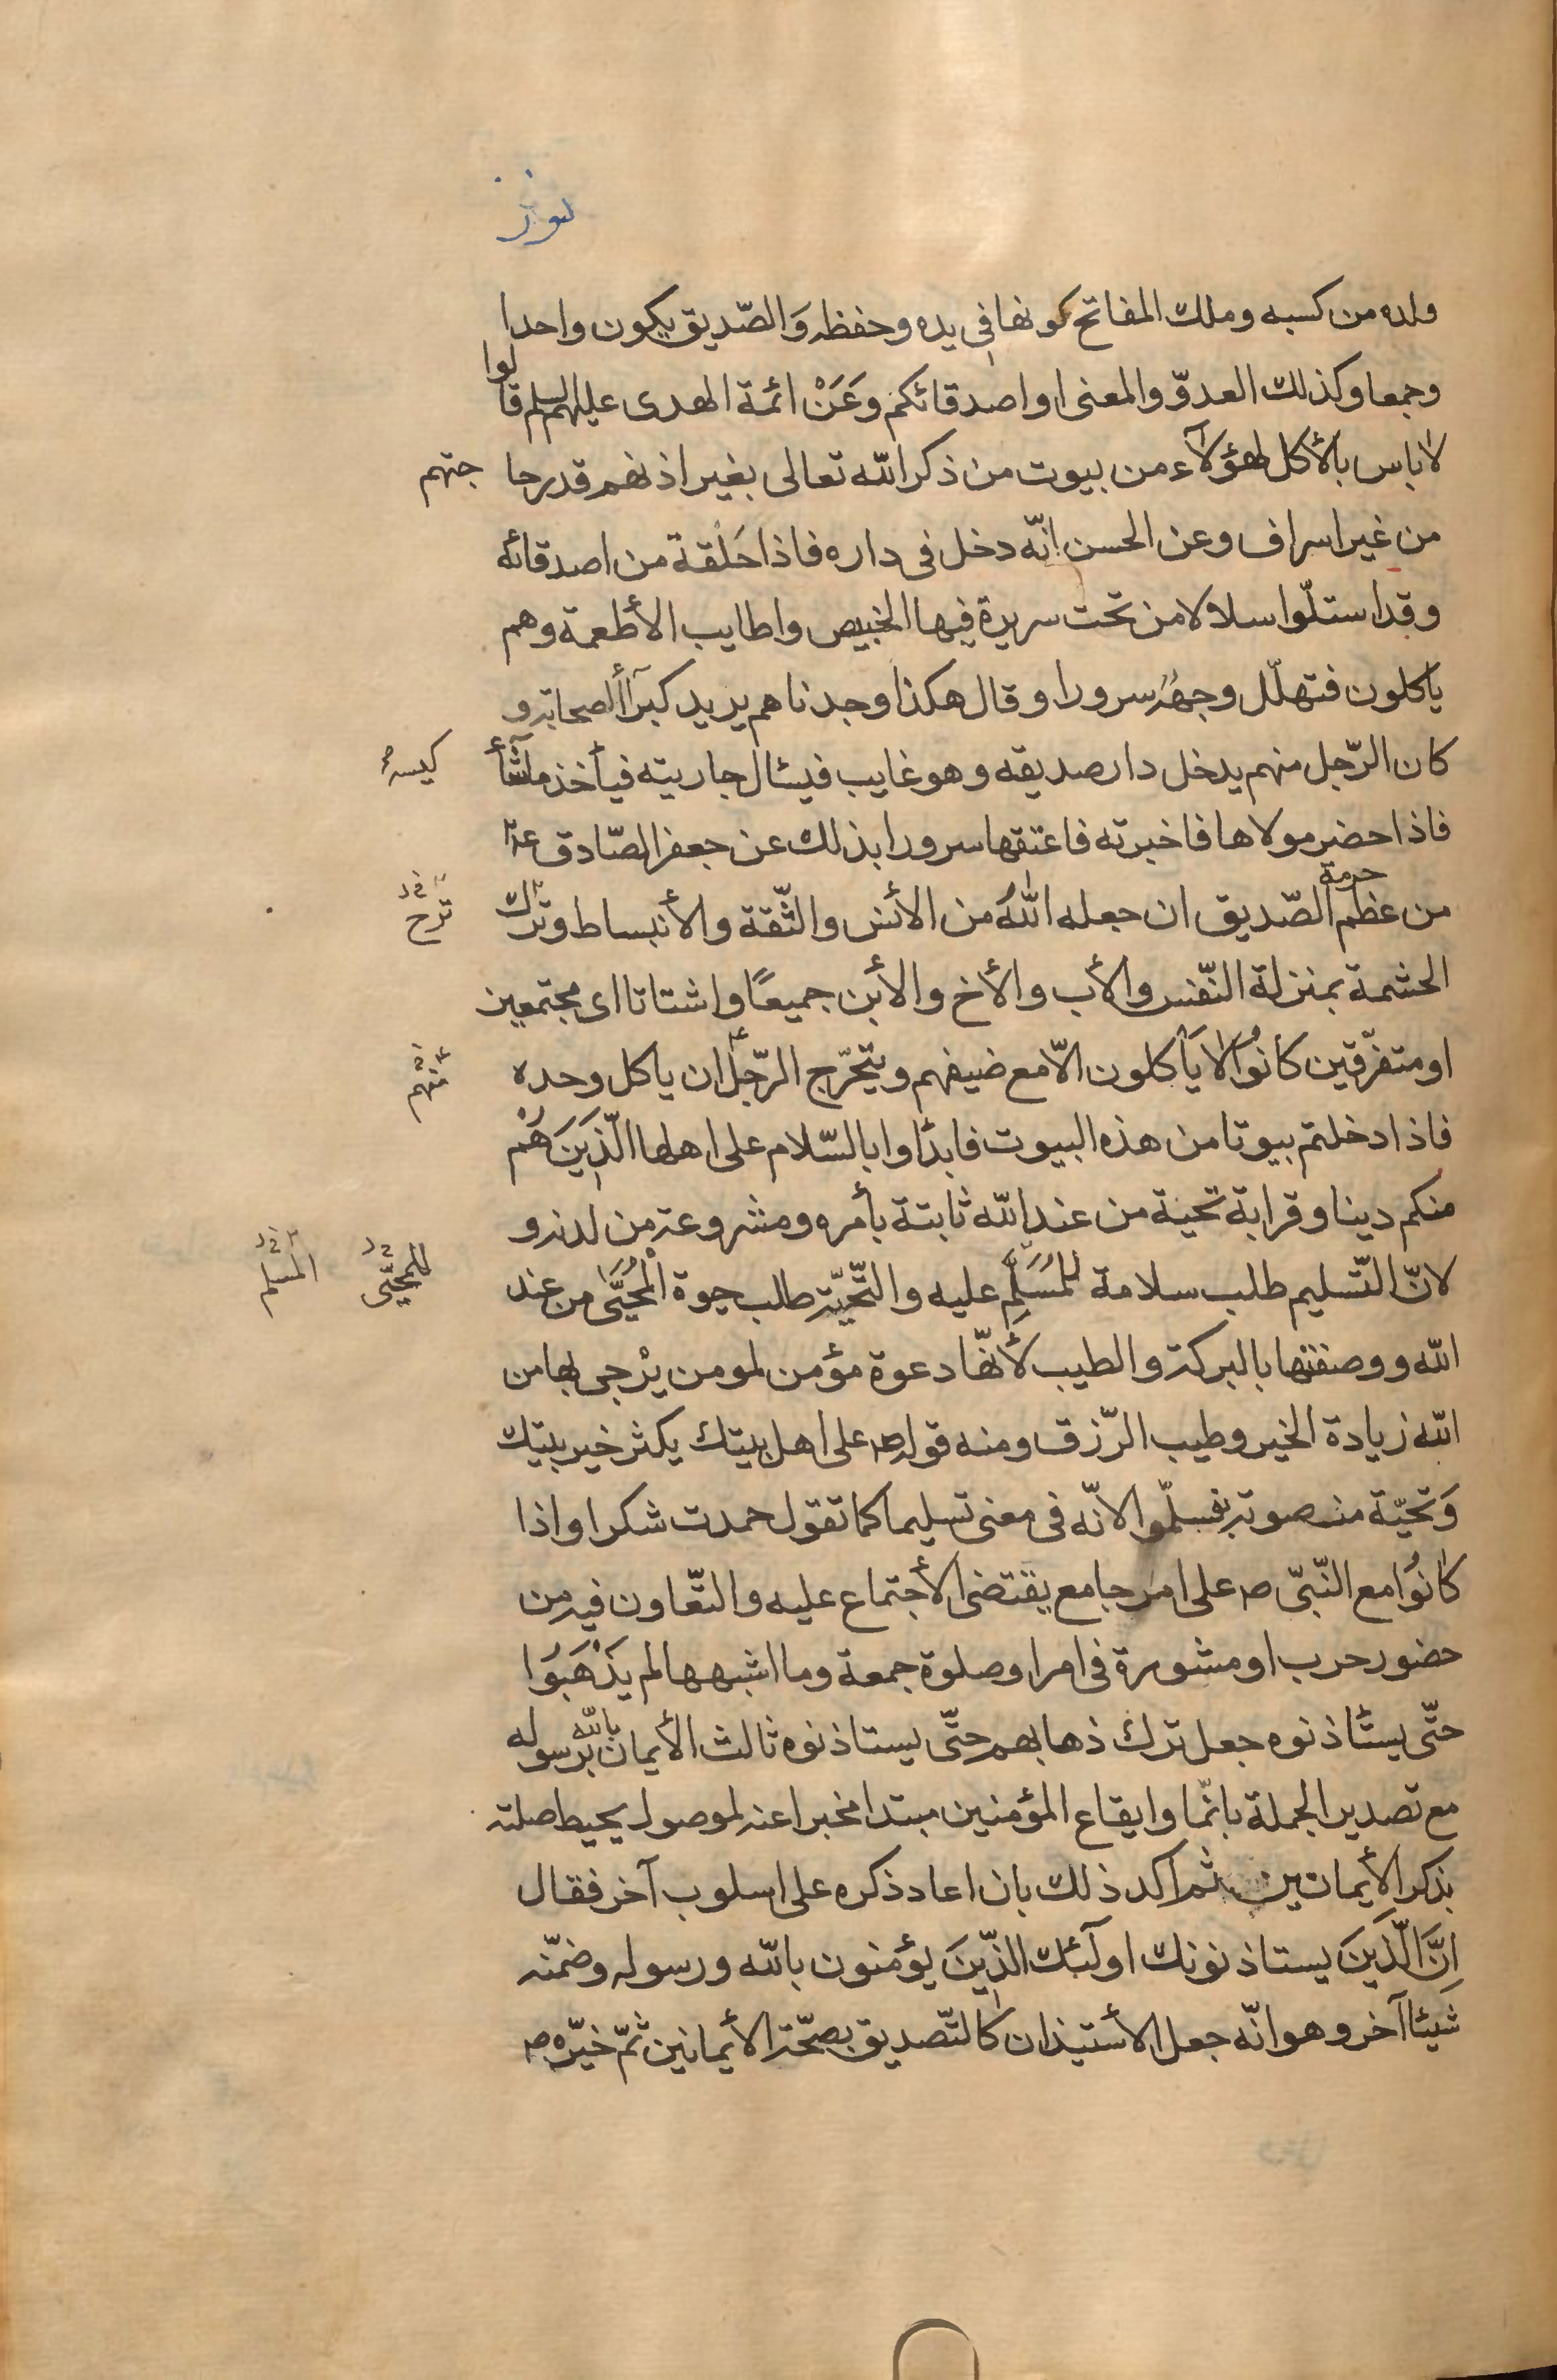 ولده من كسبه وملك المفاتح كونها فى يده وحفظه وَالصّديق يكون واحدا
وجمعا وكذلك العدوّ والمعنى او اصدقائكم وَعَنْ ائمة الهدى عليهم السلم قالوا
لا باس بالأكل لهؤلآء من بيوت من ذكر الله تعالى بغير اذنهم قدر حاجتهم
من غير اسراف وعن الحسن انّه دخل فى داره فاذا حَلْقة من اصدقائه
وقد استلّوا سلالا من تحت سريرة فيها الخبيص واطايب الأطعمة وهم
ياكلون فتهلّل وجهُهُ سرورا وقال هكذا وجدناهم يريد كبرآأ لصحابة و
كان الرّجل منهم يدخل دار صديقه وهو غايب فيسئال جاريته فيأخذ ماشآء
كيسه
فاذا حضر مولاها فاخبرته فاعتقها سرورا بذلك عن جعفر الصّادق ع
من عظم حرمة الصّديق ان جعله اللهُ من الأنس والثّقة والأنبساط وترك
الحشمة بمنزلة النّفس والأب والأخ والأبن جميعًا واشتاتا اى مجتمعين
او متفرّقين كانُوا لا يَأكلون الّا مع ضيفهم ويتحرّج الرّجل ان ياكل وحده
منهم
فاذا دخلتم بيوتا من هذه البيوت فابدًاوا بالسّلام على اهلها الّذِينَ هُم
منكم دينا وقرابة تحية من عند الله ثابتة بأمره ومشروعة من لدنه و
لانّ التّسليم طلب سلامة للمُسَلَّم عليه والتّحيّة طلب حيوة الْمُحَيَّى من عند
للمحيّى
المسلم
الله ووصفها بالبركة والطيب لأنهّا دعوة مؤمن لمومن يرْجى بها من
الله زيادة الخير وطيب الرّزق ومنه قوله ص على اهل بيتك يكثر خير بيتك
وَتحيّة منصوبة بفسلّموا لانّه فى معنى تسليما كما تقول حمدت شكرا واذا
كانُوا مع النّبىّ ص على امر جامع يقتضى الأجتماع عليه والتّعاون فيه من
حضور حرب او مشورة فى امر او صلوة جمعة وما اشبهها لم يَذْهَبُوا
حتّى يستَاذنوه جعل ترك ذهابهم حتّى يستاذنوه ثالث الأيمان بالله برسوله
مع تصدير الجملة بانّما وايقاع المؤمنين مبتدا مخبرا عنه لموصول يحيط صلته
بذكر الأيمانين ثم اكد ذلك بان اعاد ذكره على اسلوب آخر فقال
اِنَّ الَّذِينَ يستاذنونك اولَئك الذّينَ يؤمنون بالله ورسوله وضمّنه
شيئا آخر وهو انّه جعل الأستيذان كالتّصديق بصحّة الأيمانين ثمّ خيّره ص